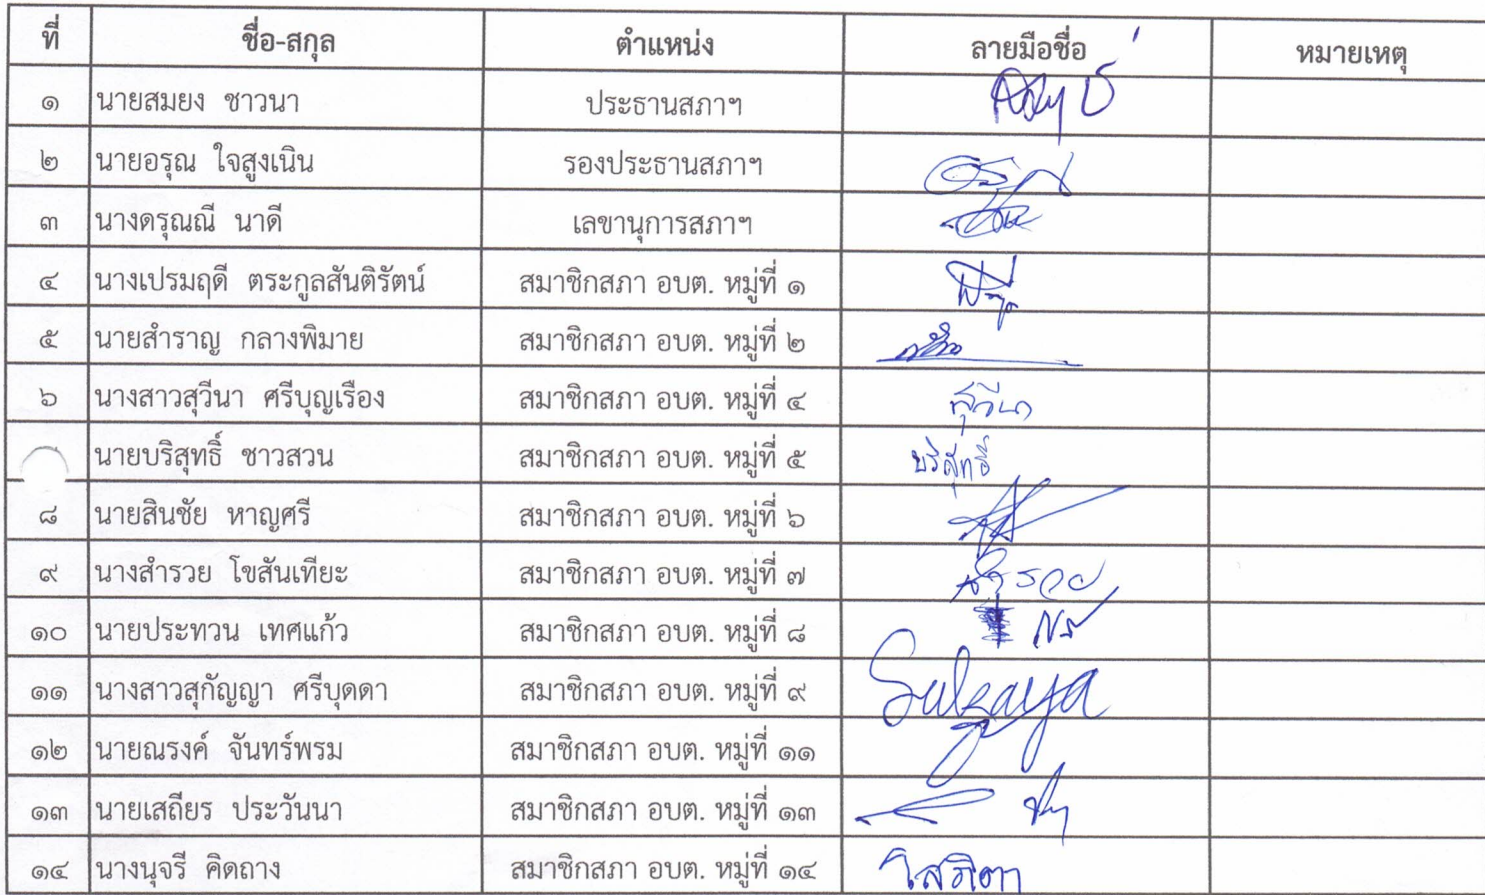 ที่ ชื่อ-สกุล ตำแหน่ง ลายมือชื่อ หมายเหตุ
๑ นายสมยง ชาวนา ประธานสภาฯ
๒ นายอรุณ ใจสูงเนิน รองประธานสภาฯ
๓ นางดรุณณี นาดี เลขานุการสภาฯ
๔ นางเปรมฤดี ตระกูลสันติรัตน์ สมาชิกสภา อบต. หมู่ที่ ๑
๕ นายสำราญ กลางพิมาย สมาชิกสภา อบต. หมู่ที่ ๒
๖ นางสาวสุวีนา ศรีบุญเรือง สมาชิกสภา อบต. หมู่ที่ ๔ สุวีนา
นายบริสุทธิ์ ชาวสวน สมาชิกสภา อบต. หมู่ที่ ๕ บริสุทธิ์
๘ นายสินชัย หาญศรี สมาชิกสภา อบต. หมู่ที่ ๖
๙ นางสำรวย โขสันเทียะ สมาชิกสภา อบต. หมู่ที่ ๗ สำรวย
๑๐ นายประทวน เทศแก้ว สมาชิกสภา อบต. หมู่ที่ ๘
๑๑ นางสาวสุกัญญา ศรีบุดดา สมาชิกสภา อบต. หมู่ที่ ๙
๑๒ นายณรงค์ จันทร์พรม สมาชิกสภา อบต. หมู่ที่ ๑๑
๑๓ นายเสถียร ประวันนา สมาชิกสภา อบต. หมู่ที่ ๑๓
๑๔ นางนุจรี คิดถาง สมาชิกสภา อบต. หมู่ที่ ๑๔